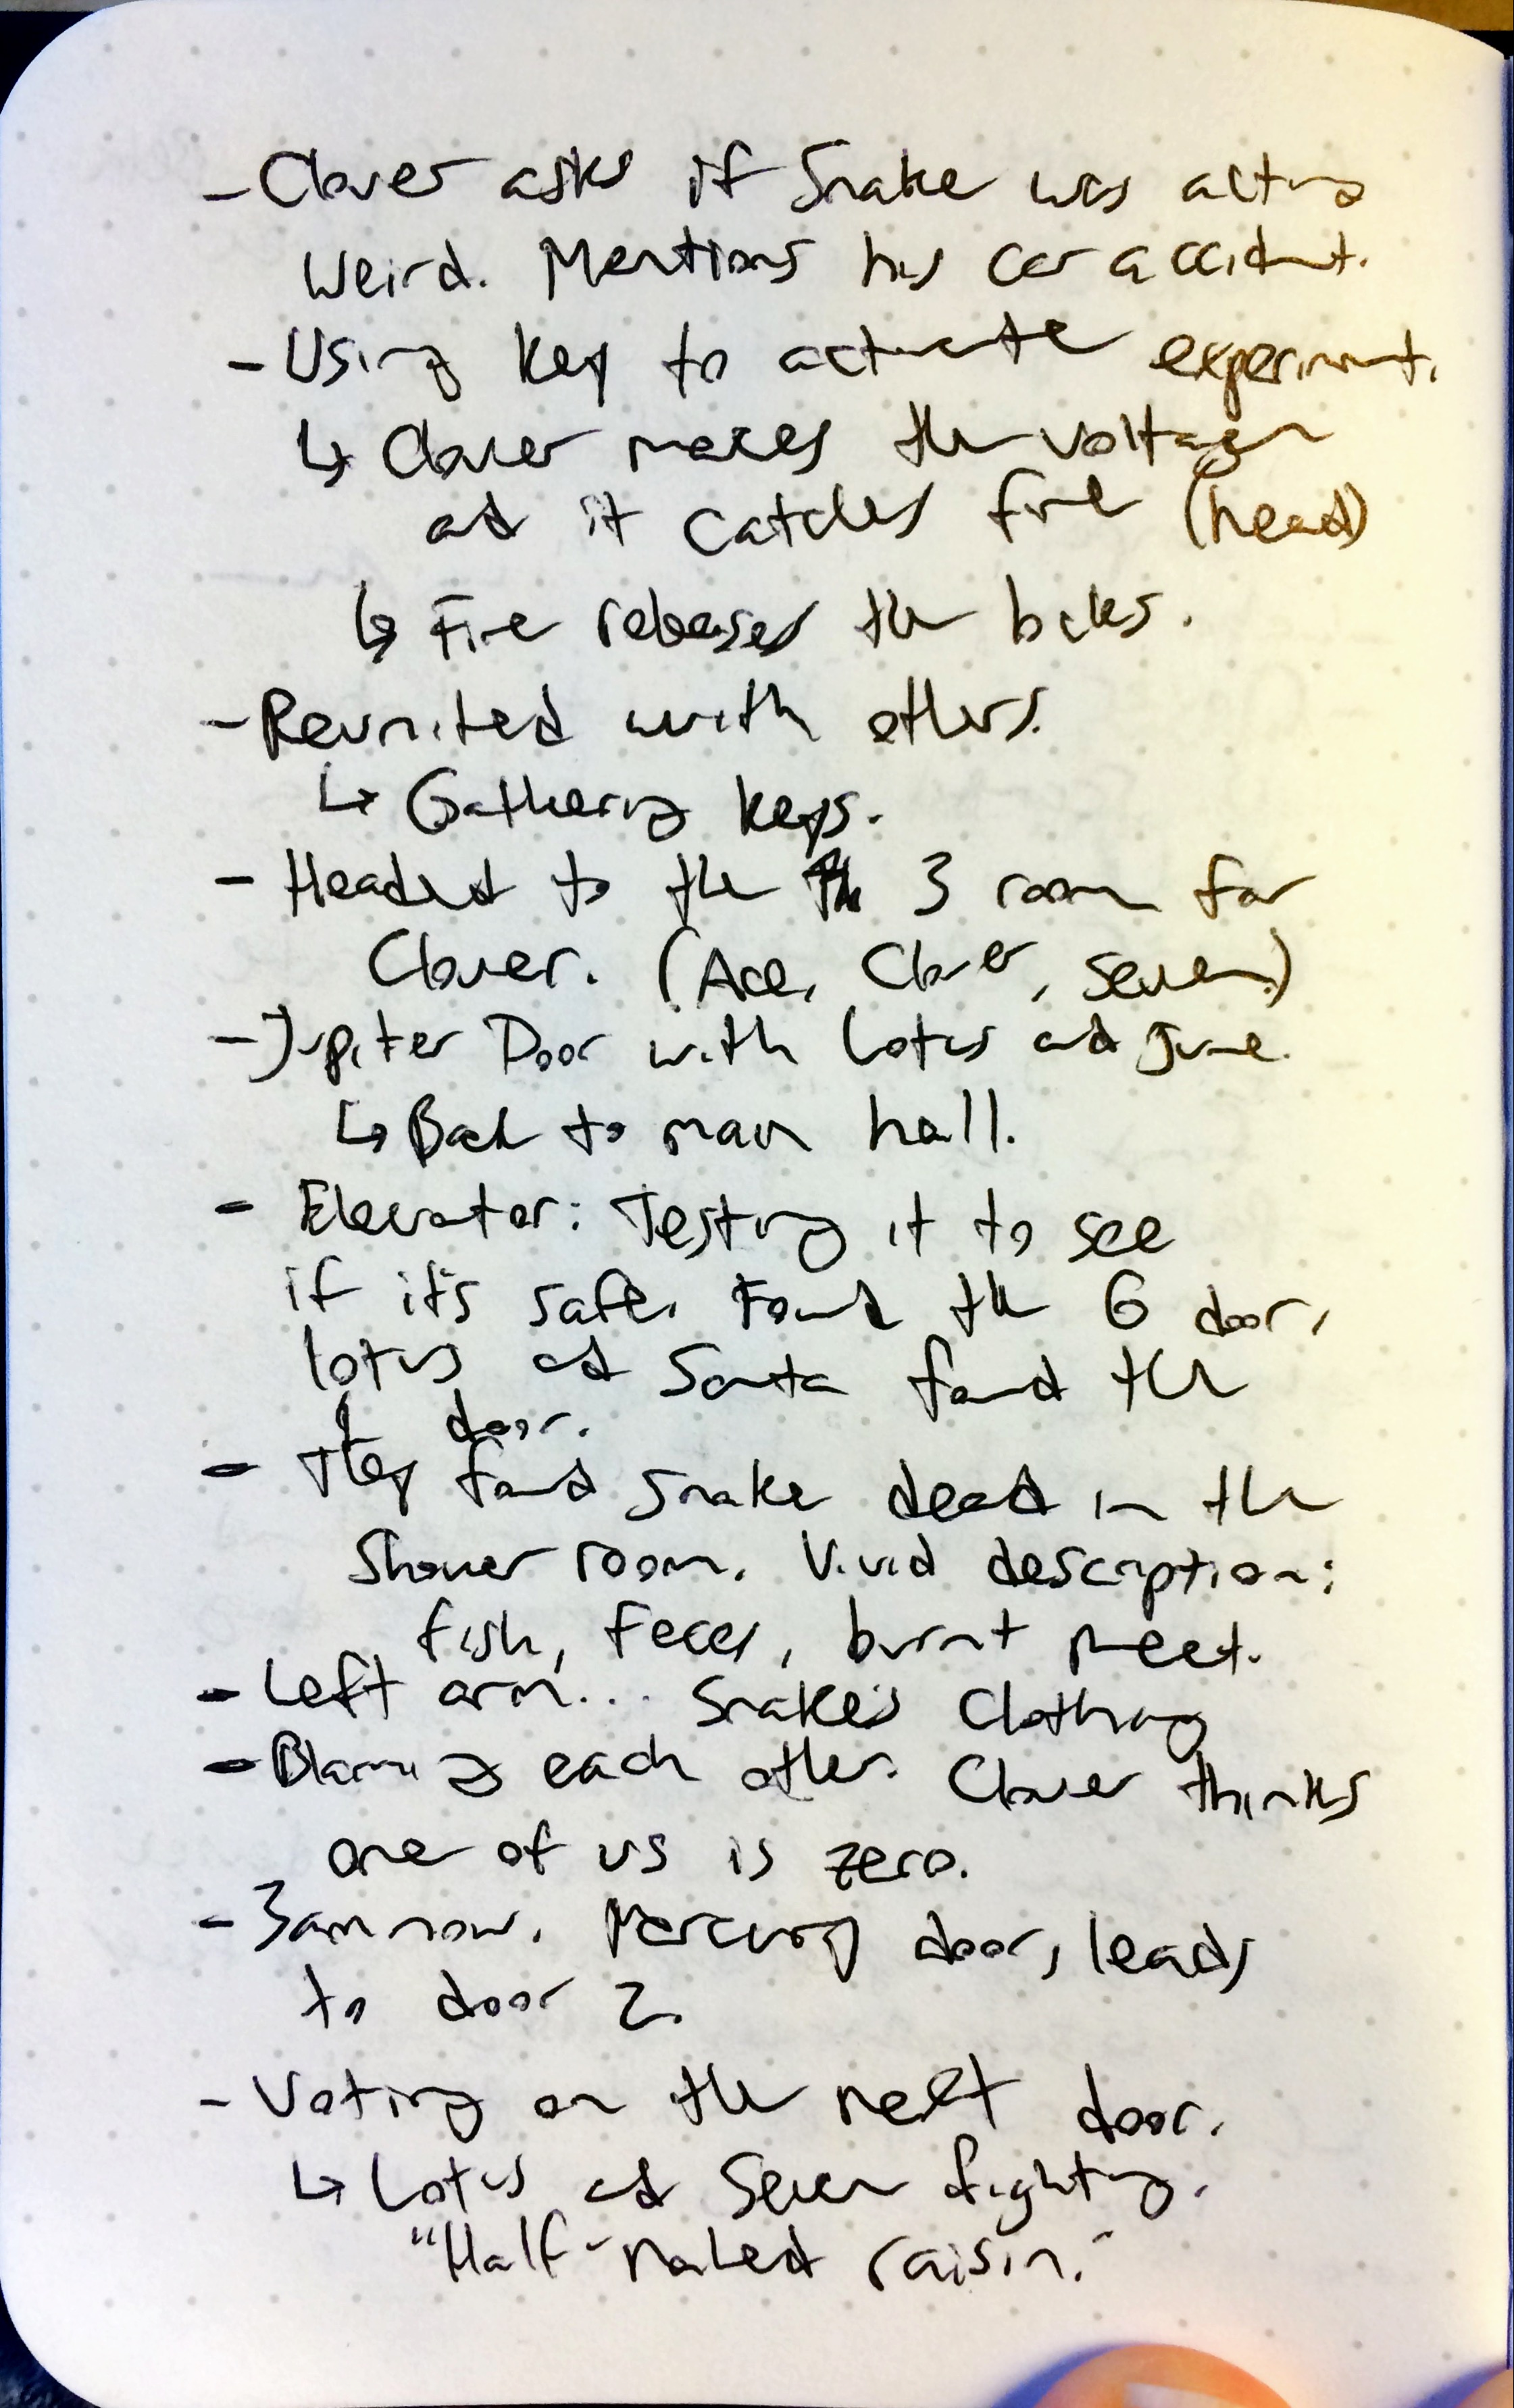 - Clover asks if Snake was acting
weird. Mentions his car accident.
- Using key to activate experiment.
↳ Clover maxes the voltage
and it catches fire (head)
↳ Fire releases the bikes.
- Reunited with others.
↳ Gathering keys.
- Headed to the 3 room for
Clover. (Ace, Clover, Seven)
- Jupiter Door with Lotus and June.
↳ Back to main hall.
- Elevator: Testing it to see
if it's safe. Found the 6 door,
lotus and Santa found the
door.
- They found Snake dead in the
Shower room. Vivid description:
fish, feces, burnt meet.
- Left arm... Snake's Clothing
- Blaming each other. Clover thinks
one of us is zero.
- 3am now. Mercury door, leads
to door 2.
- Voting on the next door.
↳ Lotus and Seven fighting.
"Half-naked raisin."